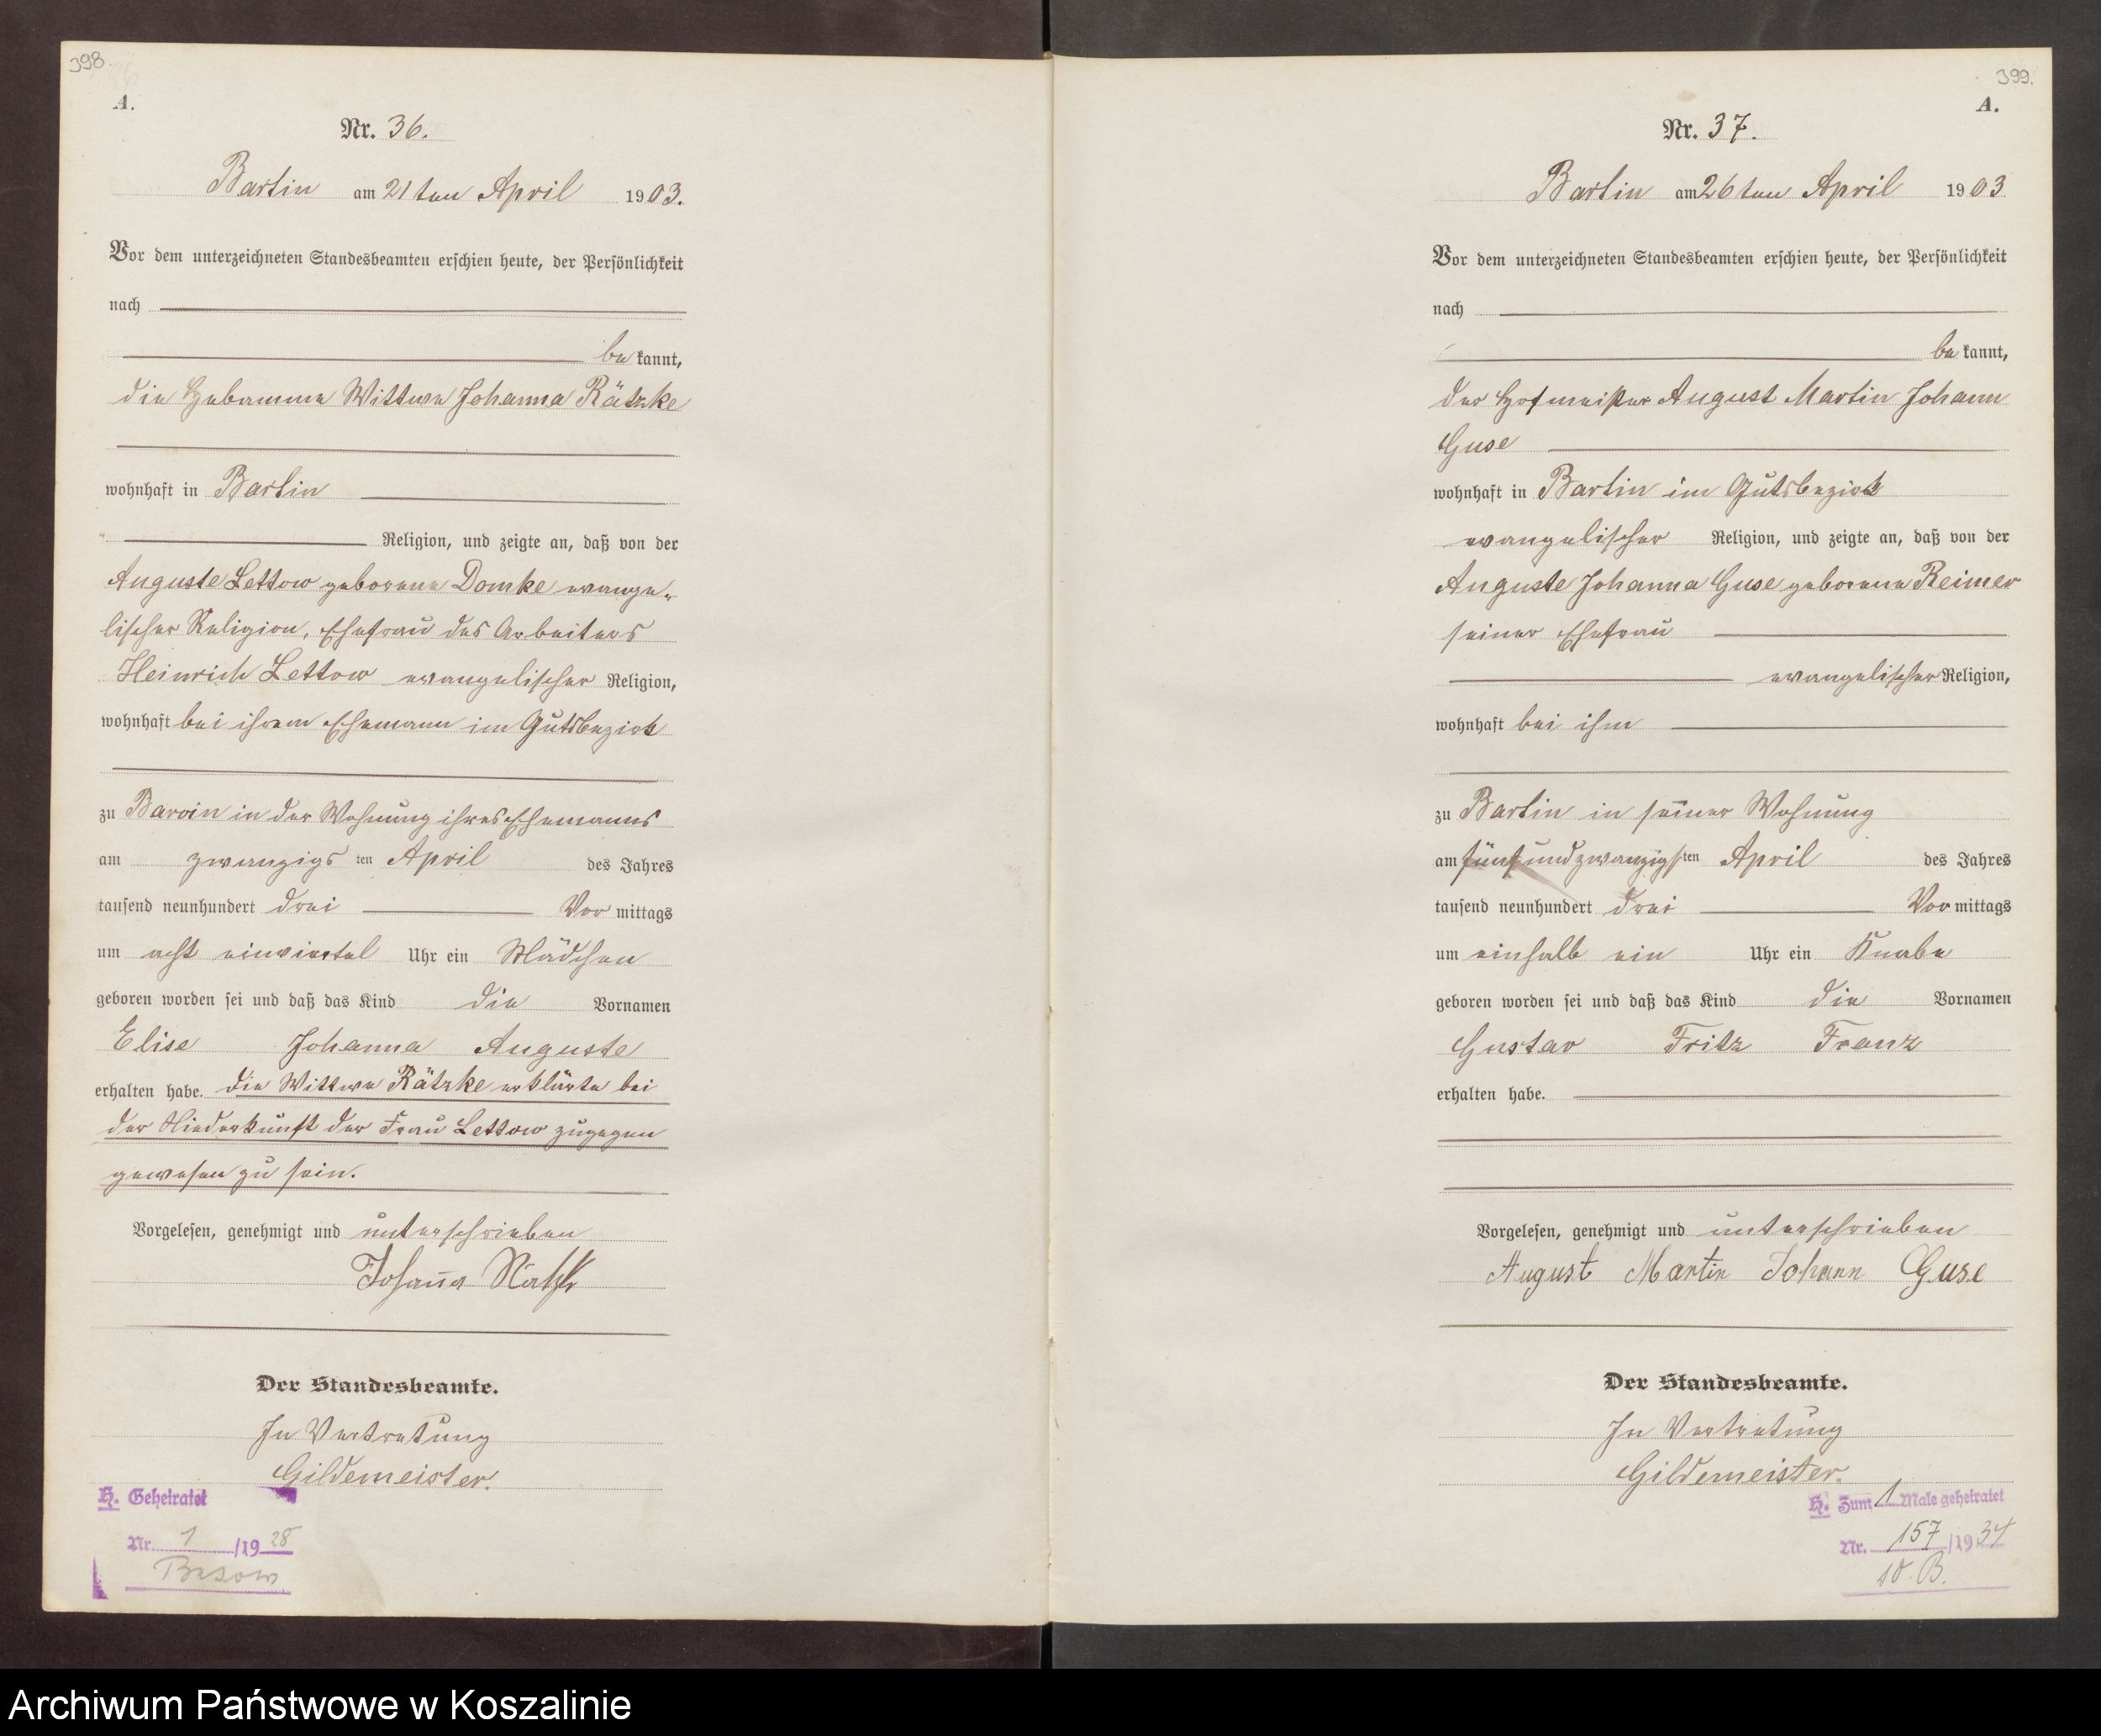 398.
A.
Nr. 36.
Bartin am 21ten April 1903.
Vor dem unterzeichneten Standesbeamten erschien heute, der Persönlichkeit
nach
bekannt,
die Hebamme Wittwe Johanna Rätzke
wohnhaft in Bartin
Religion, und zeigte an, daß von der
Auguste Lettow geborene Domke evange-
lischer Religion, Ehefrau des Arbeiters
Heinrich Lettow evangelischer Religion,
wohnhaft bei ihrem Ehemann im Gutsbezirk
zu Barvin in der Wohnung ihres Ehemanns
am zwanzigsten April des Jahres
tausend neunhundert drei Vormittags
um acht einviertel Uhr ein Mädchen
geboren worden sei und daß das Kind die Vornamen
Elise Johanna Auguste
erhalten habe. Die Wittwe Rätzke erklärte bei
der Niederkunft der Frau Lettow zugegen
gewesen zu sein.
Vorgelesen, genehmigt und unterschrieben
Johanna Rätzke
Der Standesbeamte.
In Vertretung
Gildemeister.
H. Geheiratet
Nr. 1 /1928
399.
A.
Nr. 37.
Bartin am 26ten April 1903
Vor dem unterzeichneten Standesbeamten erschien heute, der Persönlichkeit
nach
bekannt,
der Hofmeister August Martin Johann
Guse
wohnhaft in Bartin im Gutsbezirk
evangelischer Religion, und zeigte an, daß von der
Auguste Johanna Guse geborene Reimer
seiner Ehefrau
evangelischer Religion,
wohnhaft bei ihm
zu Bartin in seiner Wohnung
am fünfundzwanzigsten April des Jahres
tausend neunhundert drei Vormittags
um einhalb ein Uhr ein Knabe
geboren worden sei und daß das Kind die Vornamen
Gustav Fritz Franz
erhalten habe.
Vorgelesen, genehmigt und unterschrieben
August Martin Johann Guse
Der Standesbeamte.
In Vertretung
Gildemeister.
H. Zum 1 Male geheiratet
Nr. 157 /1934
Archiwum Państwowe w Koszalinie